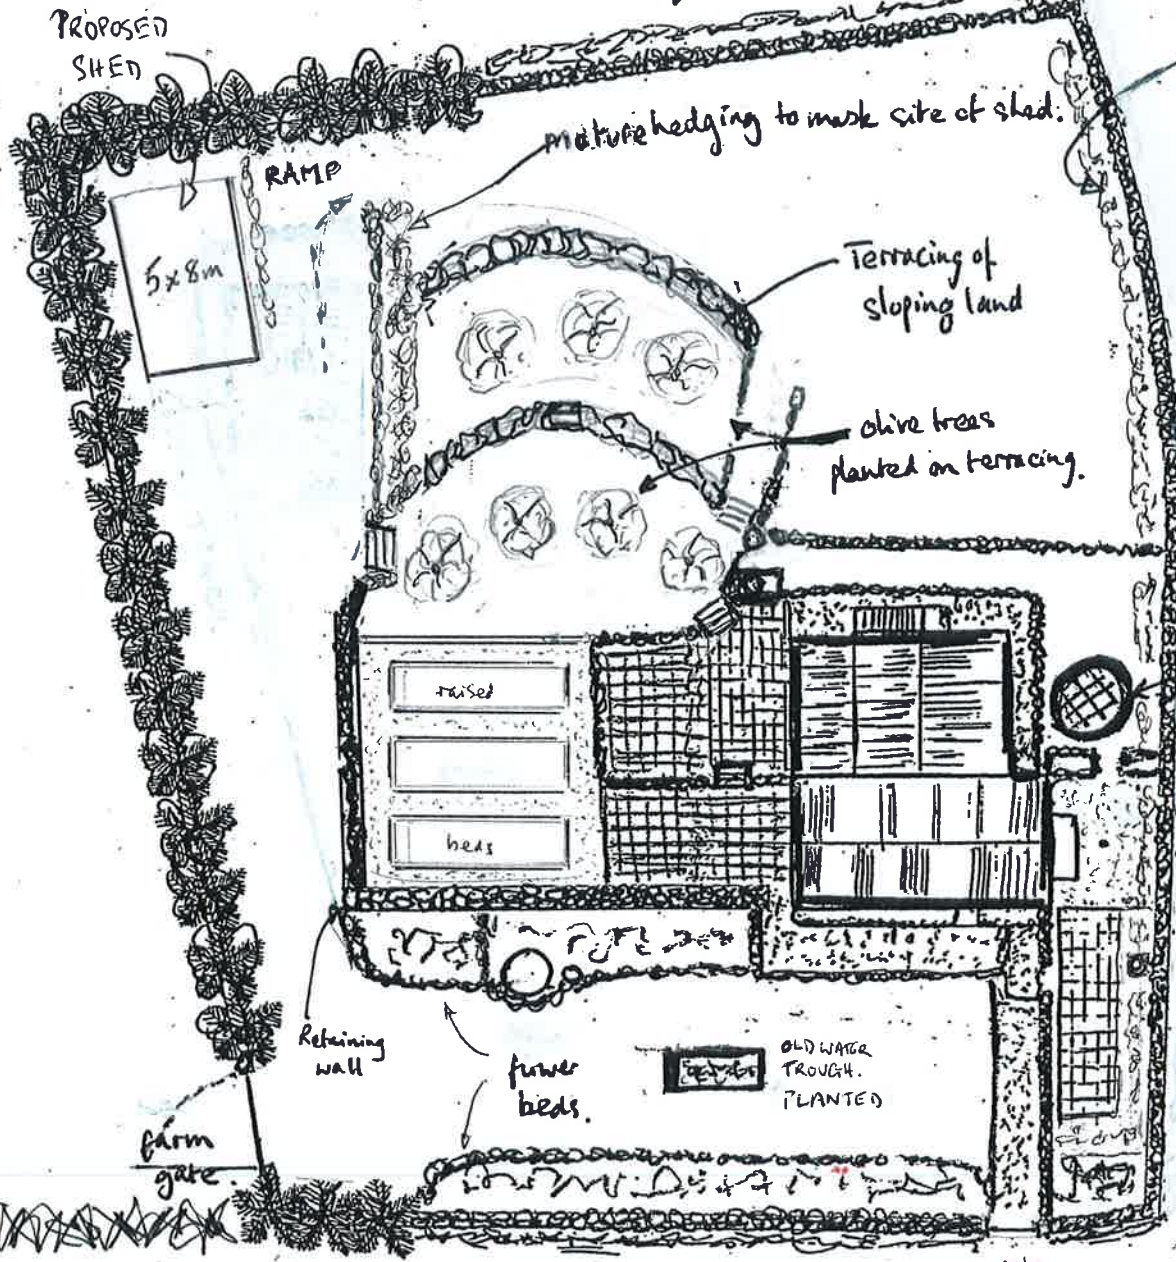 PROPOSED
SHED
RAMP
mature hedging to mask site of shed.
5x8m
Terracing of
sloping land
olive trees
planted on terracing.
raised
beds
Retaining
wall
flower
beds.
OLD WATER
TROUGH.
PLANTED
farm
gate.